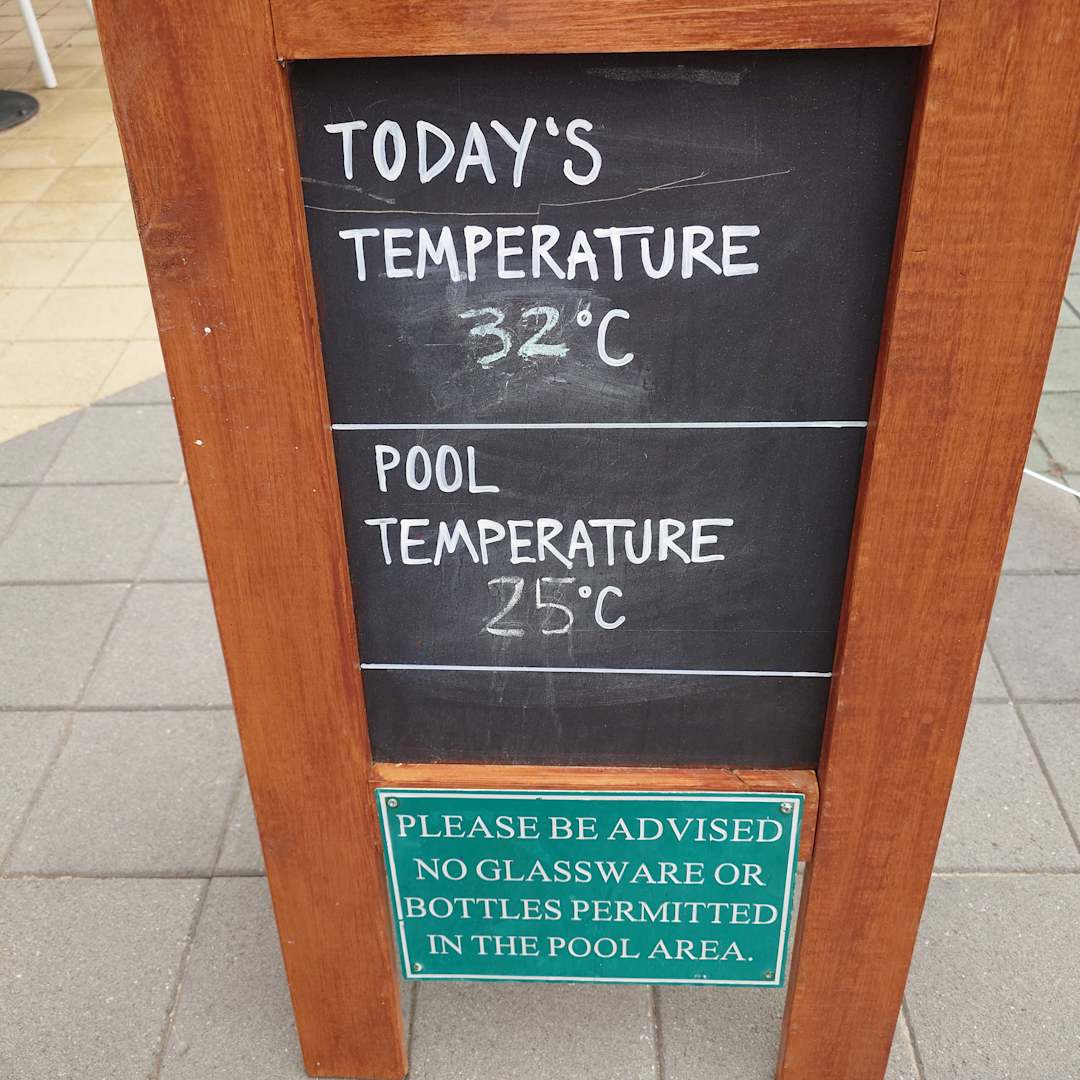 TODAY'S
TEMPERATURE
32°C
POOL
TEMPERATURE
25°C
PLEASE BE ADVISED
NO GLASSWARE OR
BOTTLES PERMITTED
IN THE POOL AREA.